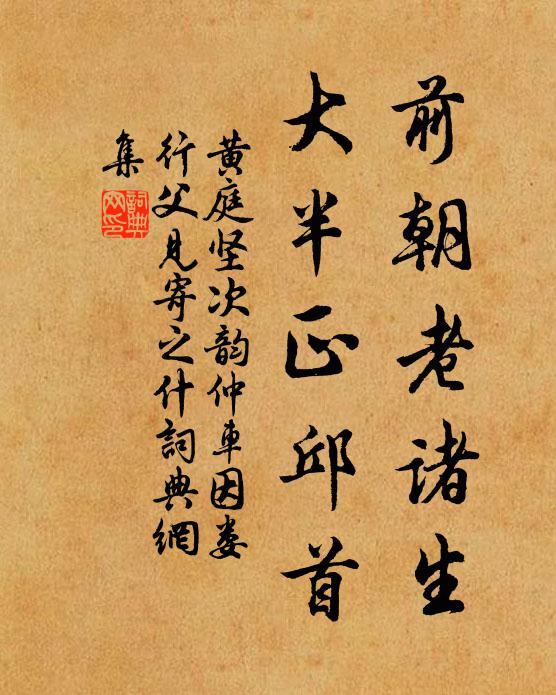 前朝老诸生
大半正邱首
黄庭坚次韵仲车因娄
行父见寄之什詞典網
集
詞典
网印